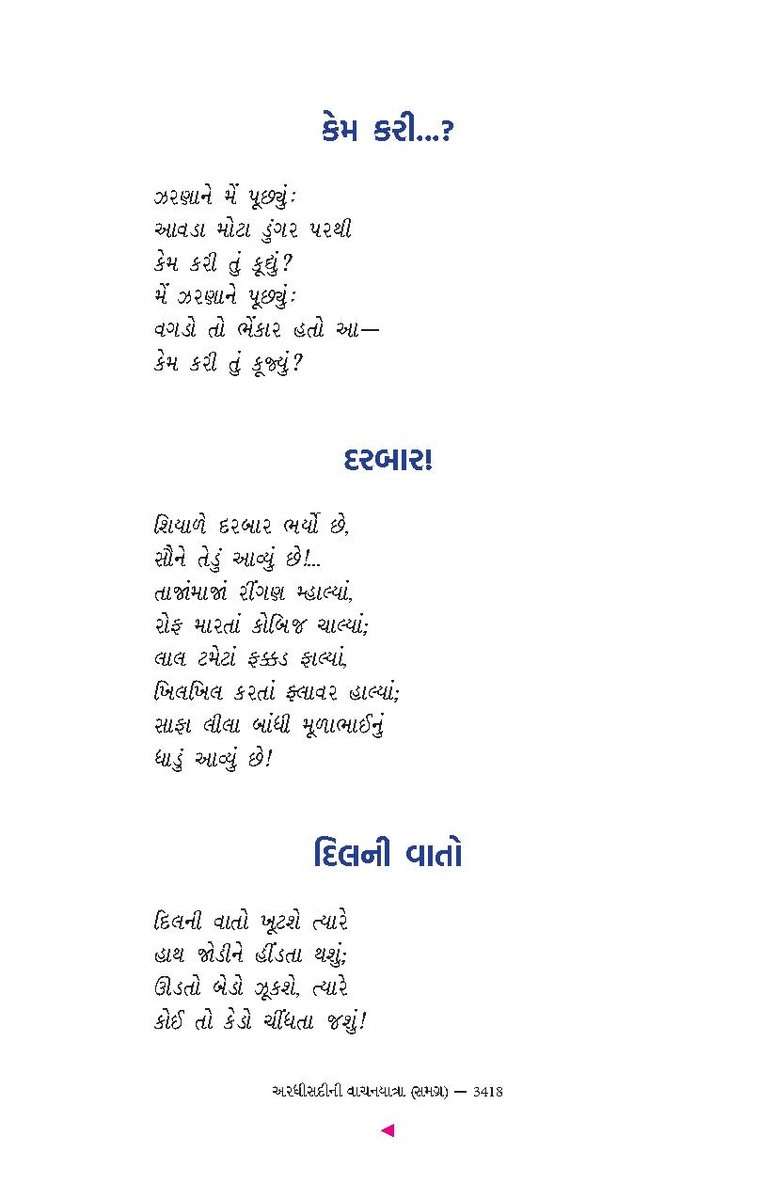 કેમ કરી...?
ઝરણાને મેં પૂછ્યું:
આવડા મોટા ડુંગર પરથી
કેમ કરી તું કૂદ્યું?
મેં ઝરણાને પૂછ્યું:
વગડો તો ભેંકાર હતો આ—
કેમ કરી તું કૂજ્યું?
દરબાર!
શિયાળે દરબાર ભર્યો છે,
સૌને તેડું આવ્યું છે!...
તાજાંમાજાં રીંગણ મ્હાલ્યાં,
રોફ મારતાં કોબિજ ચાલ્યાં;
લાલ ટમેટાં ફક્કડ ફાલ્યાં,
ખિલખિલ કરતાં ફ્લાવર હાલ્યાં;
સાફા લીલા બાંધી મૂળાભાઈનું
ધાડું આવ્યું છે!
દિલની વાતો
દિલની વાતો ખૂટશે ત્યારે
હાથ જોડીને હીંડતા થશું;
ઊડતો બેડો ઝૂકશે, ત્યારે
કોઈ તો કેડો ચીંધતા જશું!
અરધીસદીની વાચનયાત્રા (સમગ્ર) — 3418